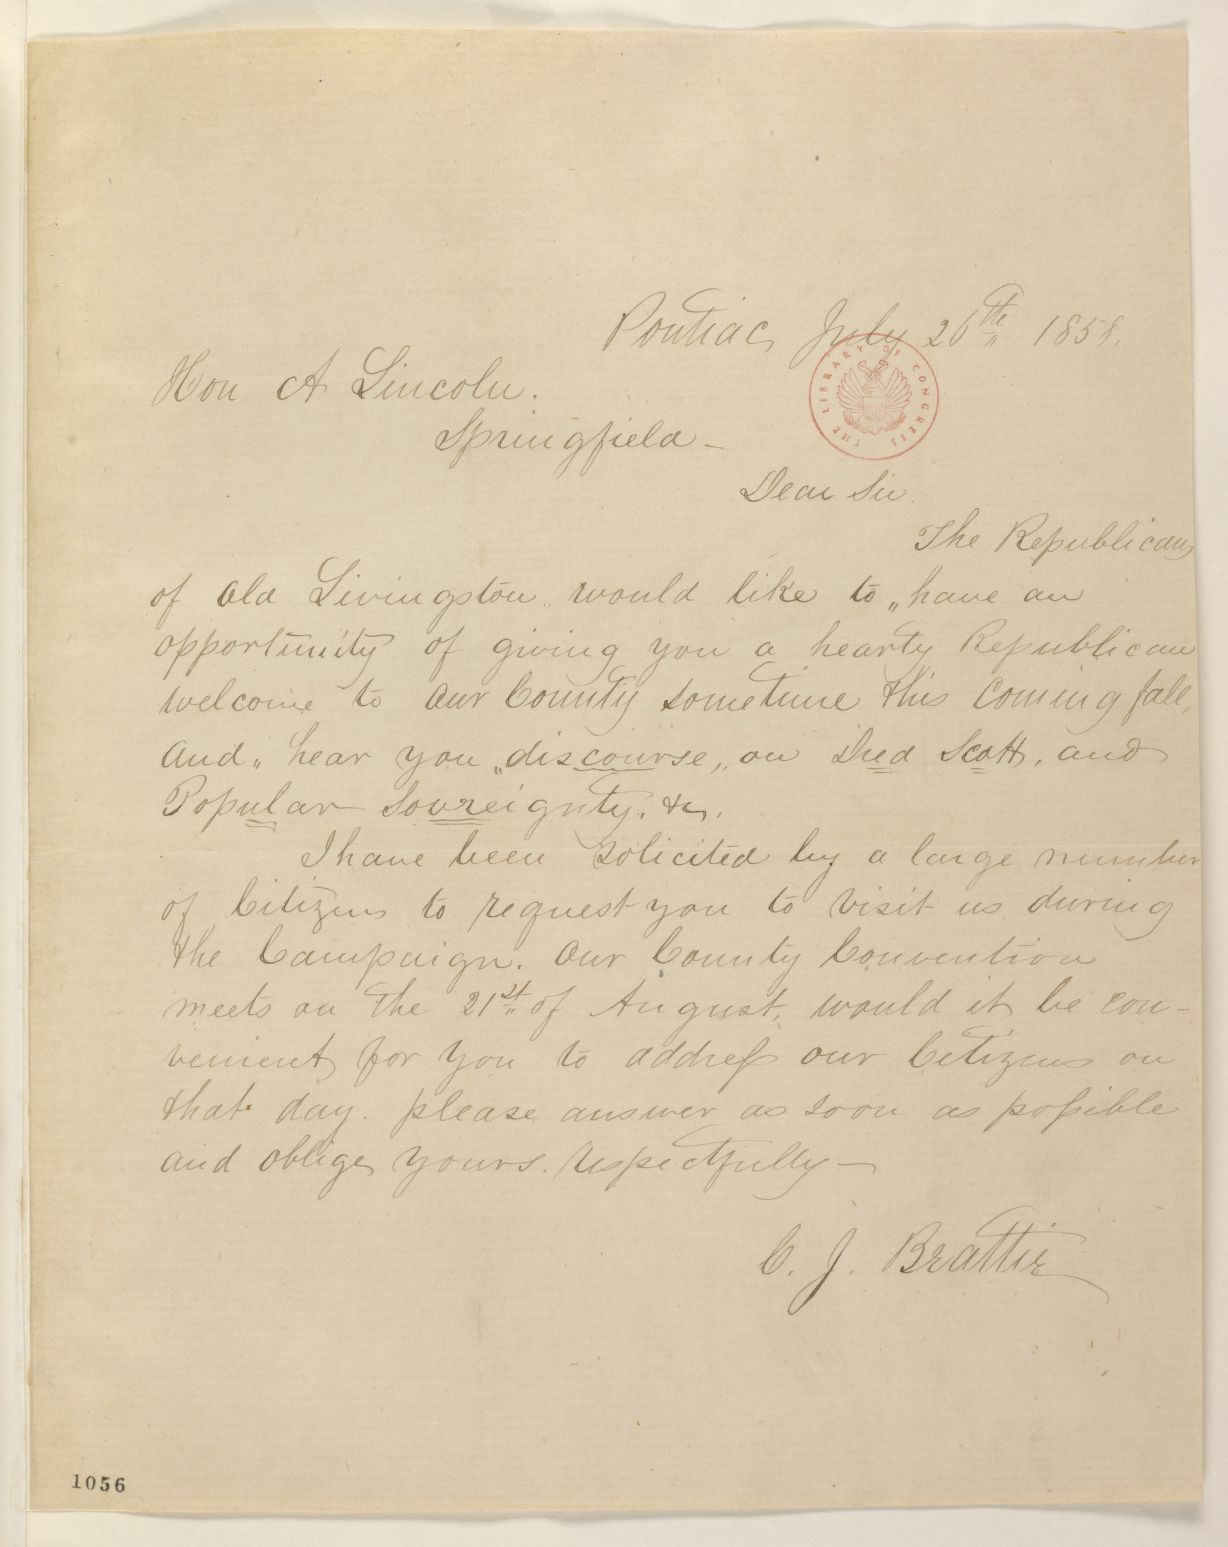 Pontiac, July 26th 1858.
Hon A Lincoln.
Springfield –
THE LIBRARY OF CONGRESS
Dear Sir.
The Republicans
of Old Livingston„ would like to „have an
opportunity of giving you a hearty Republican
welcome to our County sometime this coming fall,
and„ hear you „discourse„ on Dred Scott, and
Popular Sovreignty. &c.
I have been solicited by a large number
of Citizens to request you to visit us during
the Campaign. Our County Convention
meets on the 21st of August, would it be con-
venient for you to address our Citizens on
that day. please answer as soon as possible
and oblige, yours. respectfully –
C. J. Brattie
1056